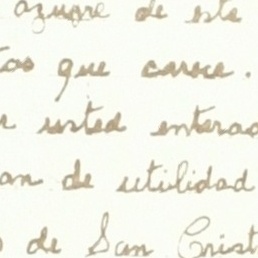 azucar de este
tas que carece.
r usted enterad
an de utilidad
de San Crist